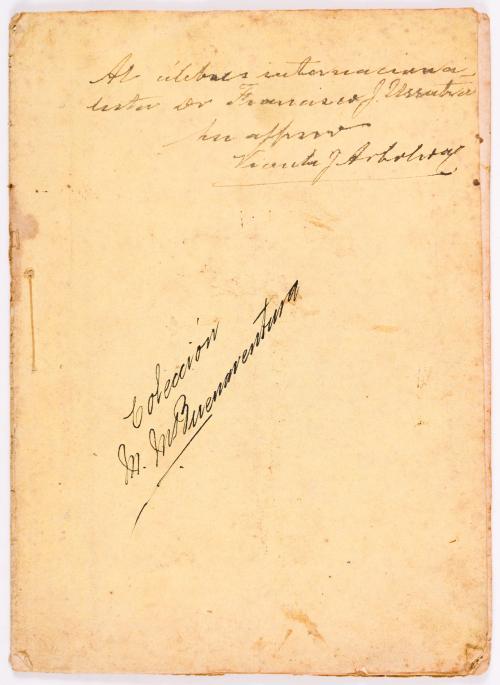 Al célebres internaciona-
lista Dr Francisco J Urrutia
su affmo
Vicente J Arboleda
Colección
M. M Buenaventura